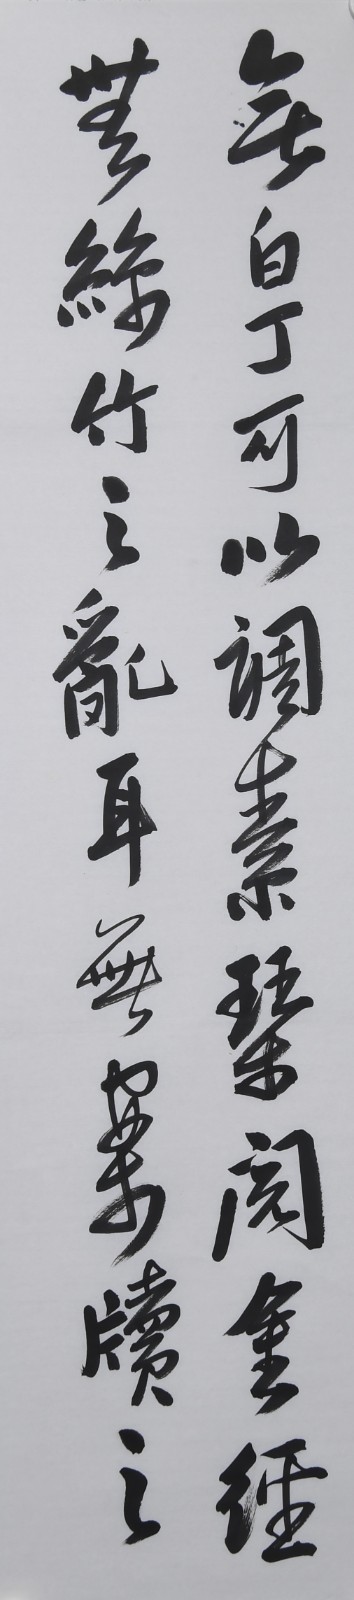 無白丁可以調素琴閱金經
無絲竹之亂耳無案牘之